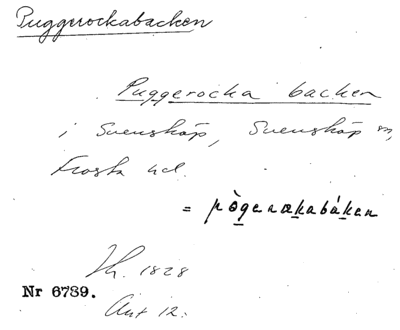 Puggerockabacken
Puggerocka backen
i Svenskóp, Svenskóp sn,
Frosta hd.
= pògerækabáken
Jh. 1828
Nr 6789.
Akt 12: